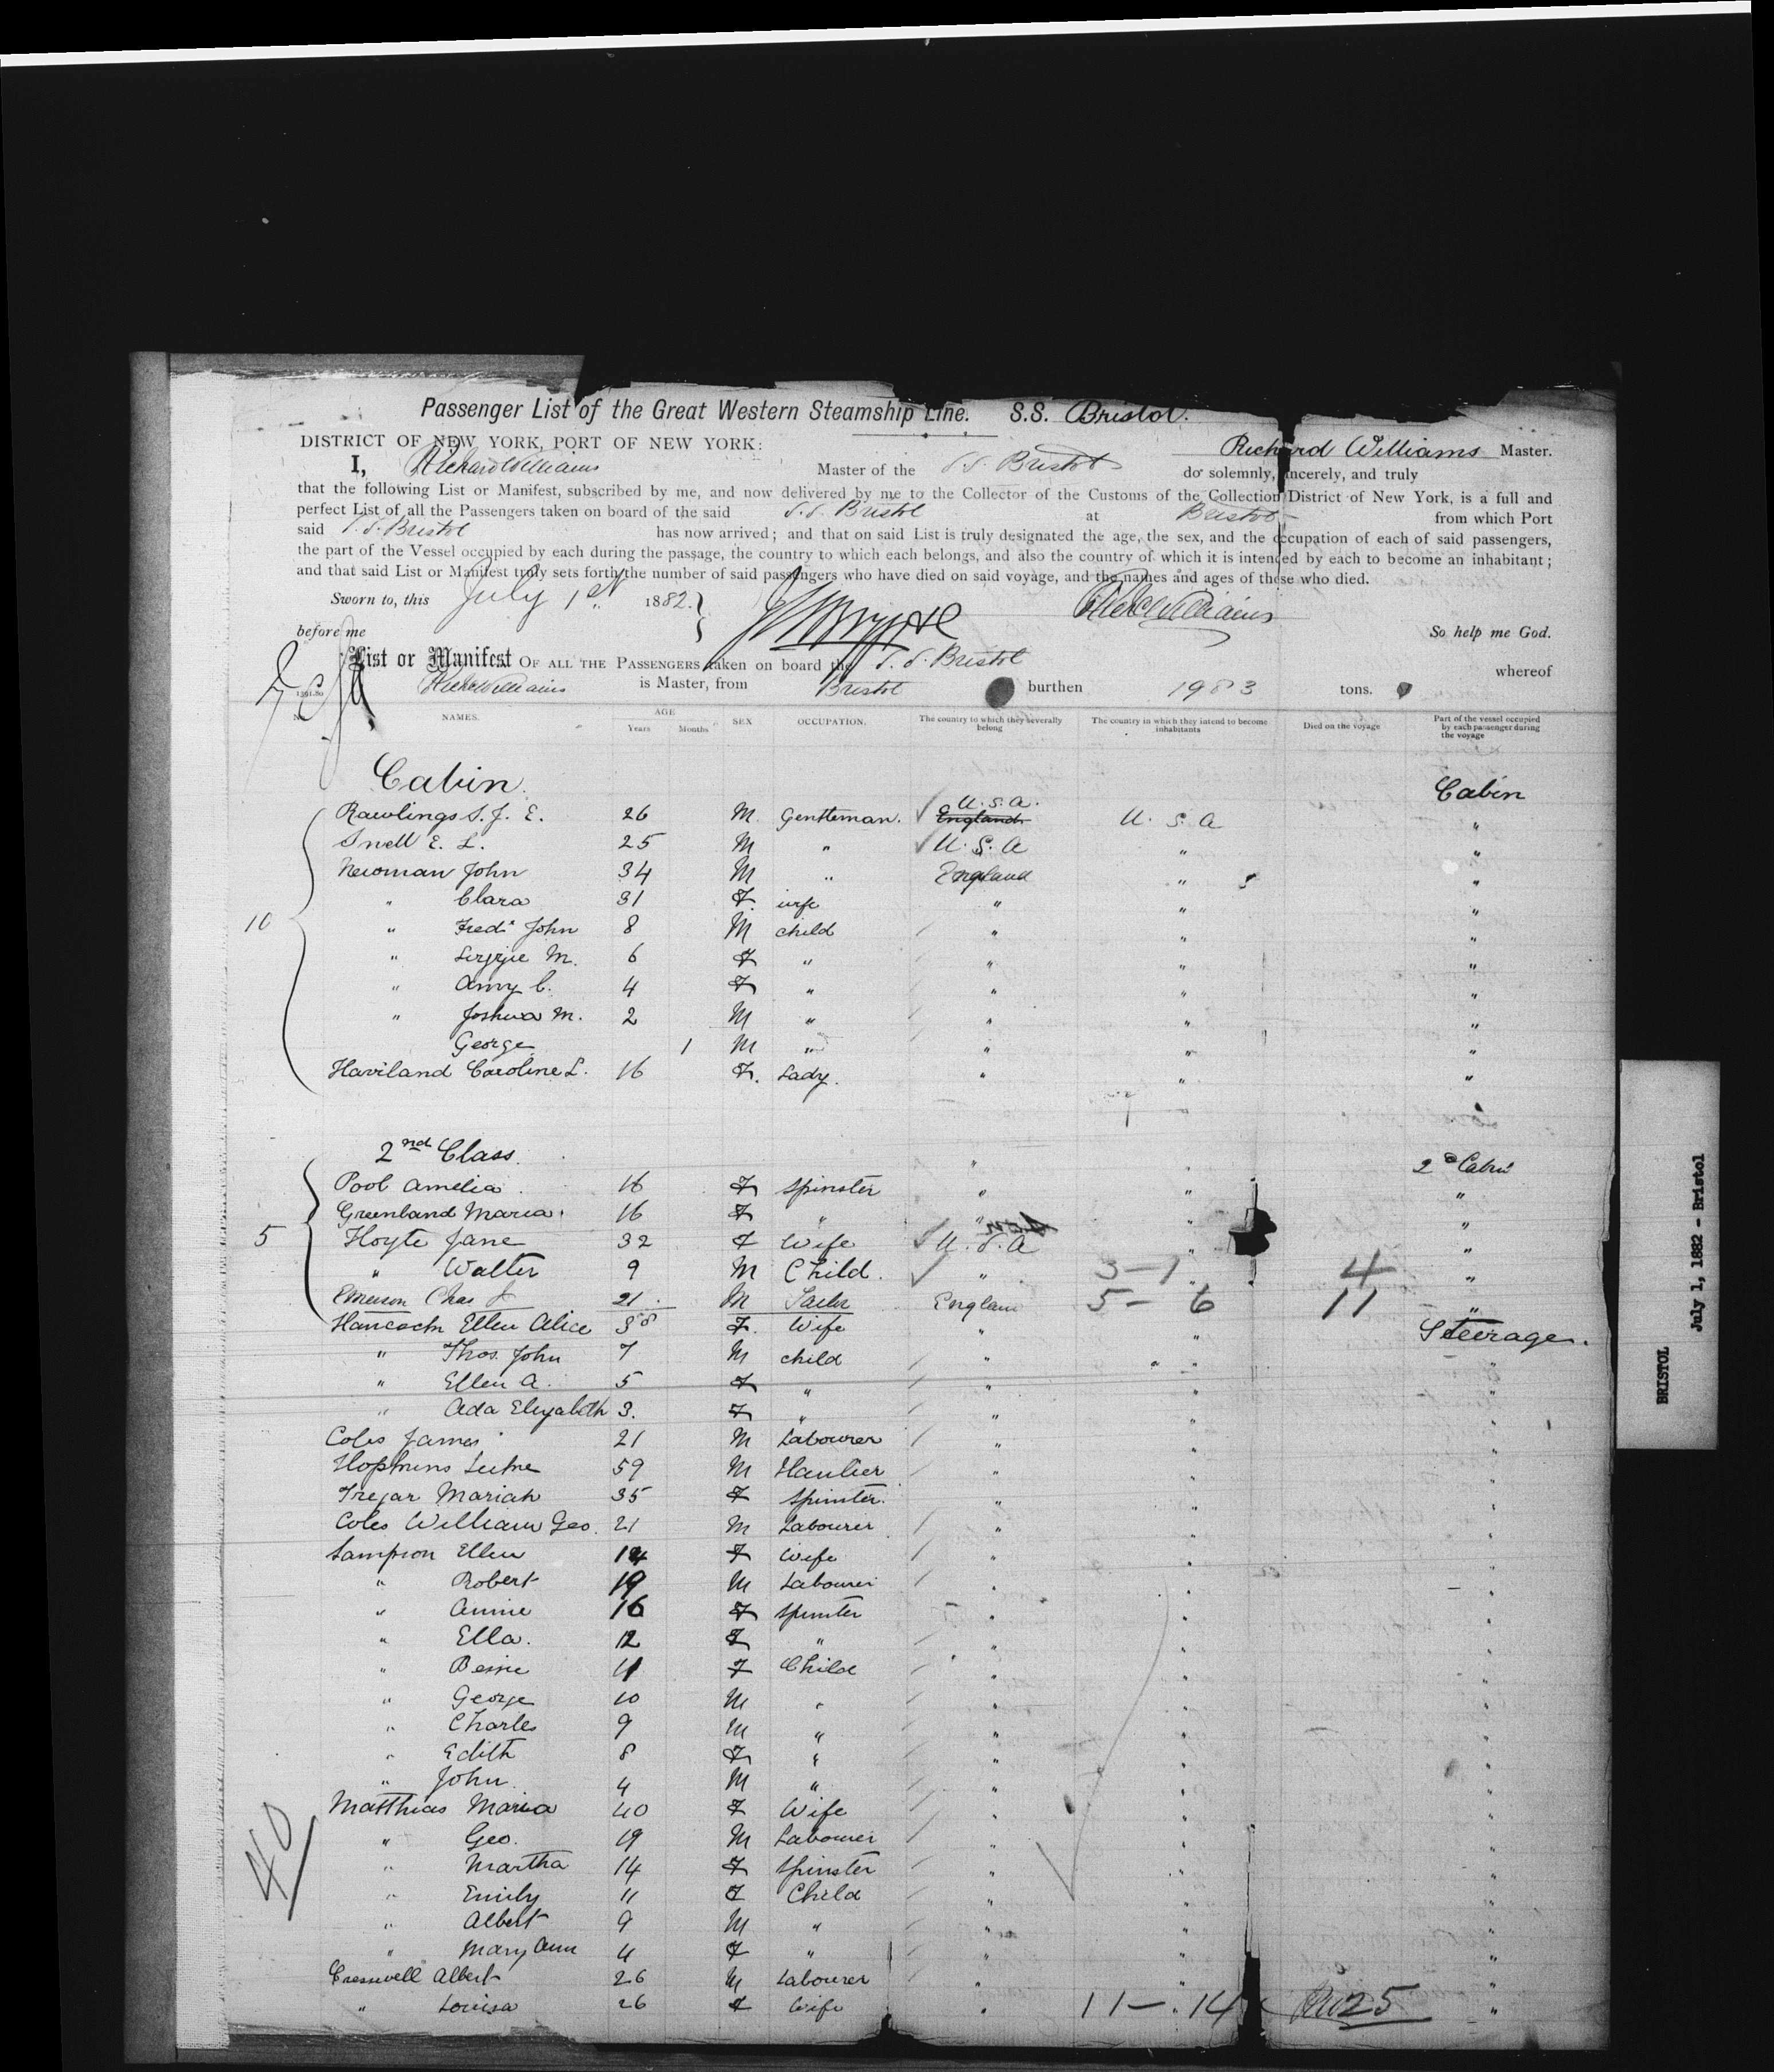 Passenger List of the Great Western Steamship Line. S.S. Bristol.
DISTRICT OF NEW YORK, PORT OF NEW YORK: Richard Williams Master.
I, Richard Williams Master of the S.S. Bristol do solemnly, sincerely, and truly
that the following List or Manifest, subscribed by me, and now delivered by me to the Collector of the Customs of the Collection District of New York, is a full and
perfect List of all the Passengers taken on board of the said S.S. Bristol at Bristol from which Port
said S.S. Bristol has now arrived; and that on said List is truly designated the age, the sex, and the occupation of each of said passengers,
the part of the Vessel occupied by each during the passage, the country to which each belongs, and also the country of which it is intended by each to become an inhabitant;
and that said List or Manifest truly sets forth the number of said passengers who have died on said voyage, and the names and ages of those who died.
Sworn to, this July 1st 1882.
before me So help me God.
List or Manifest OF ALL THE PASSENGERS taken on board the S.S. Bristol whereof
Richd Williams is Master, from Bristol burthen 1983 tons.
NAMES. AGE Years Months SEX OCCUPATION. The country to which they severally belong The country in which they intend to become inhabitants Died on the voyage Part of the vessel occupied by each passenger during the voyage
Cabin. Cabin
Rawlings S. J. E. 26 M. Gentleman. England U.S.A. U. S. A "
Snell E. L. 25 M " U. S. A " "
Newman John 34 M " England " "
" Clara 31 F. wife " " "
10
" Fredk John 8 M child " " "
" Lizzie M. 6 F " " " "
" Amy C. 4 F " " " "
" Joshua M. 2 M " " " "
George 1 M " " " "
Haviland Caroline L. 16 F. Lady. " " "
2nd Class. " " 2d Cabin
Pool Amelia 16 F Spinster " " "
Greenland Maria. 16 F " " " "
5 Hoyte Jane 32 F Wife U.S.A " "
" Walter 9 M Child. " 3-1 " 4 "
Emerson Chas 21. M England 5-6 11 "
Hancock Ellen Alice 38 F. Wife " " Steerage.
" Thos. John 7 M child " " "
" Ellen A. 5 F " " " "
" Ada Elizabeth 3. F " " " "
Coles James 21 M Labourer " " "
Hopkins 59 M Haulier " " "
Mariah 35 F Spinster. " " "
Coles William Geo. 21 M Labourer " " "
Sampson Ellen F Wife " " "
" Robert 19 M Labourer " " "
" Annie 16 F Spinster " " "
" Ella. 12 F " " " "
" Bessie 11 F Child " " "
" George 10 M " " " "
" Charles 9 M " " " "
" Edith 8 F " " " "
" John 4 M " " " "
Matthias Maria 40 F Wife " " "
" Geo. 19 M Labourer " " "
40 " Martha 14 F Spinster " " "
" Emily 11 F Child " " "
" Albert 9 M " " " "
" Mary Ann 4 F " " " "
Cresswell Albert 26 M Labourer " " "
" Louisa 26 F Wife " 11-14 25 "
BRISTOL
July 1, 1882 - Bristol